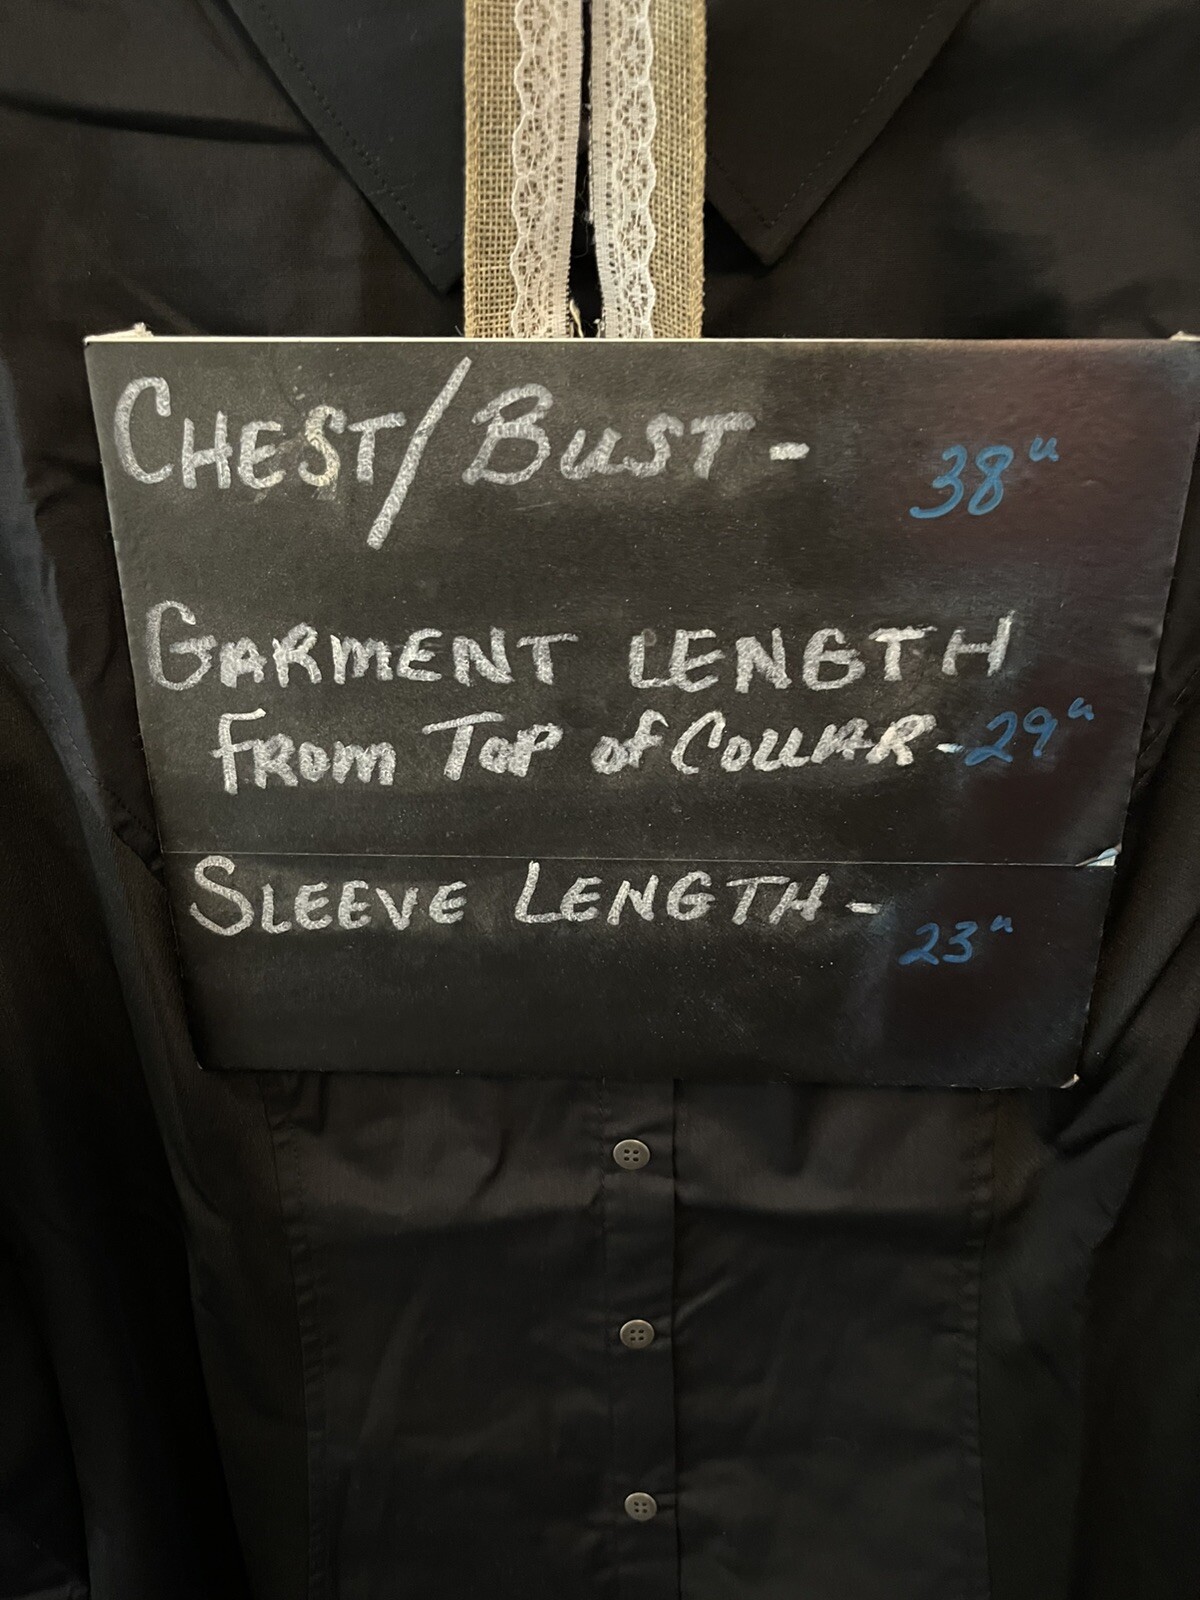 CHEST/BUST- 38"
GARMENT LENGTH
FROM TOP of COLLAR-29"
SLEEVE LENGTH- 23"